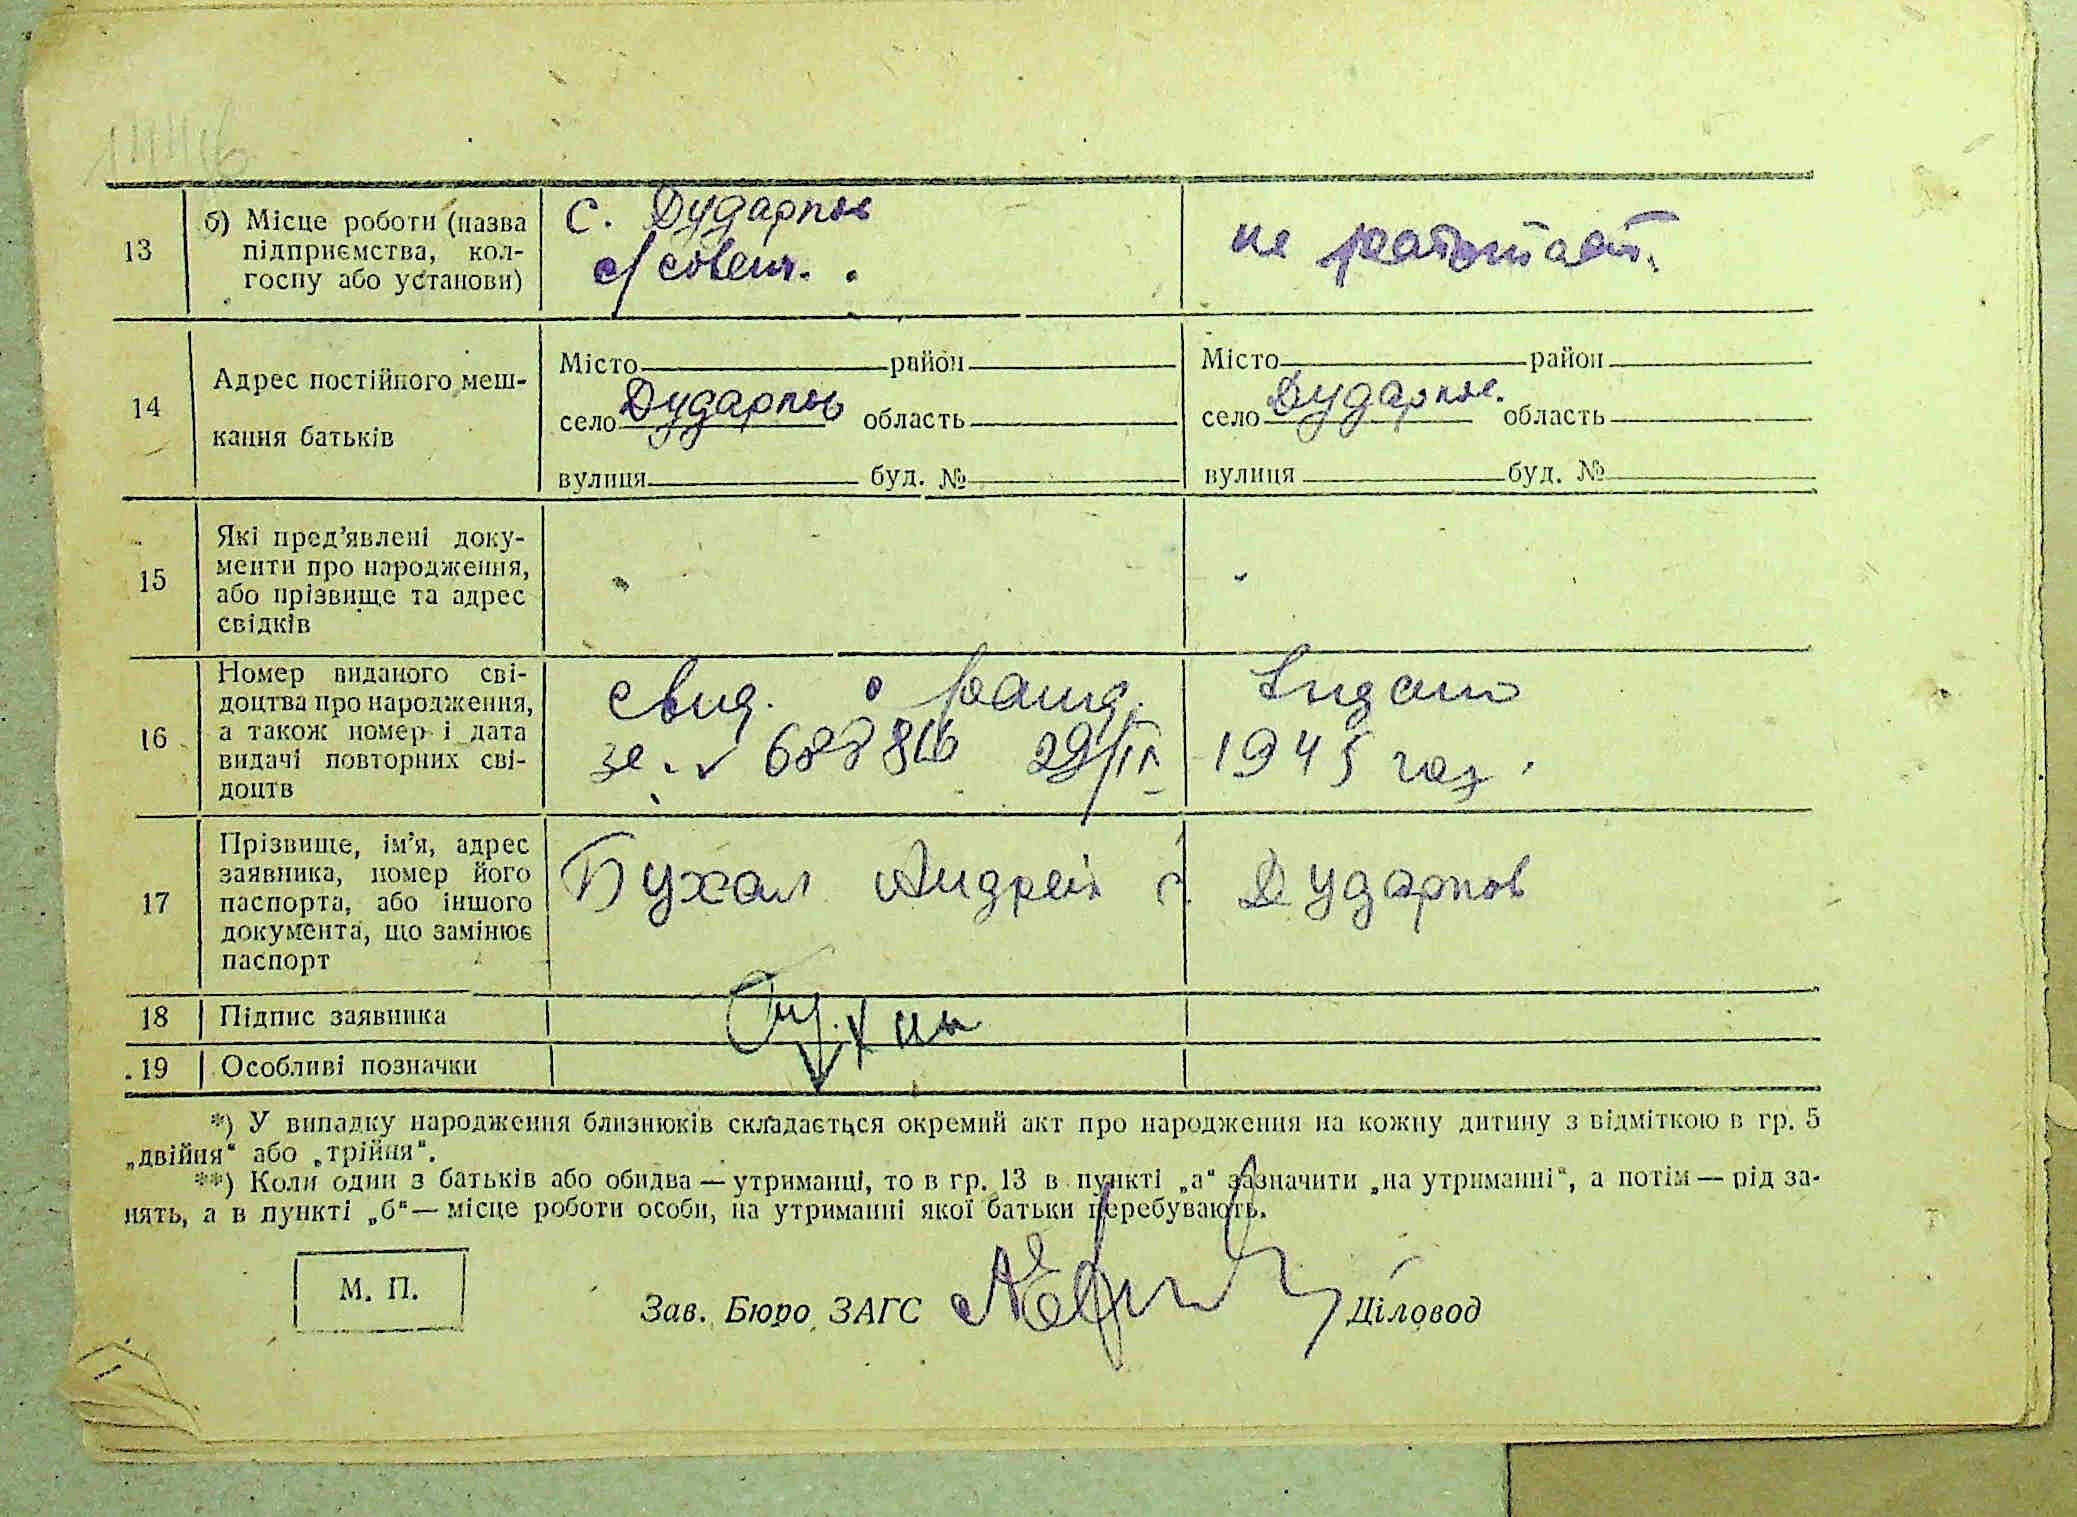 13 б) Місце роботи (назва підприємства, кол-госпу або установи)
с. Дударков
с/совет.
не работает.
14 Адрес постійного меш-
кання батьків
Місто район
село Дударков область
вулиця буд. №
Місто район
село Дударков. область
вулиця буд. №
15 Які пред'явлені доку-
менти про народження,
або прізвище та адрес
свідків
16 Номер виданого сві-
доцтва про народження,
а також номер і дата
видачі повторних сві-
доцтв
свид. о рожд. выдано
за № 29/IX 1945 год.
17 Прізвище, ім'я, адрес
заявника, номер його
паспорта, або іншого
документа, що замінює
паспорт
Бухал Андрей с. Дударков
18 Підпис заявника
19 Особливі позначки
*) У випадку народження близнюків складається окремий акт про народження на кожну дитину з відміткою в гр. 5
„двійня“ або „трійня“.
**) Коли один з батьків або обидва — утриманці, то в гр. 13 в пункті „а“ зазначити „на утриманні“, а потім — рід за-
нять, а в пункті „б“ — місце роботи особи, на утриманні якої батьки перебувають.
М. П.
Зав. Бюро ЗАГС Діловод